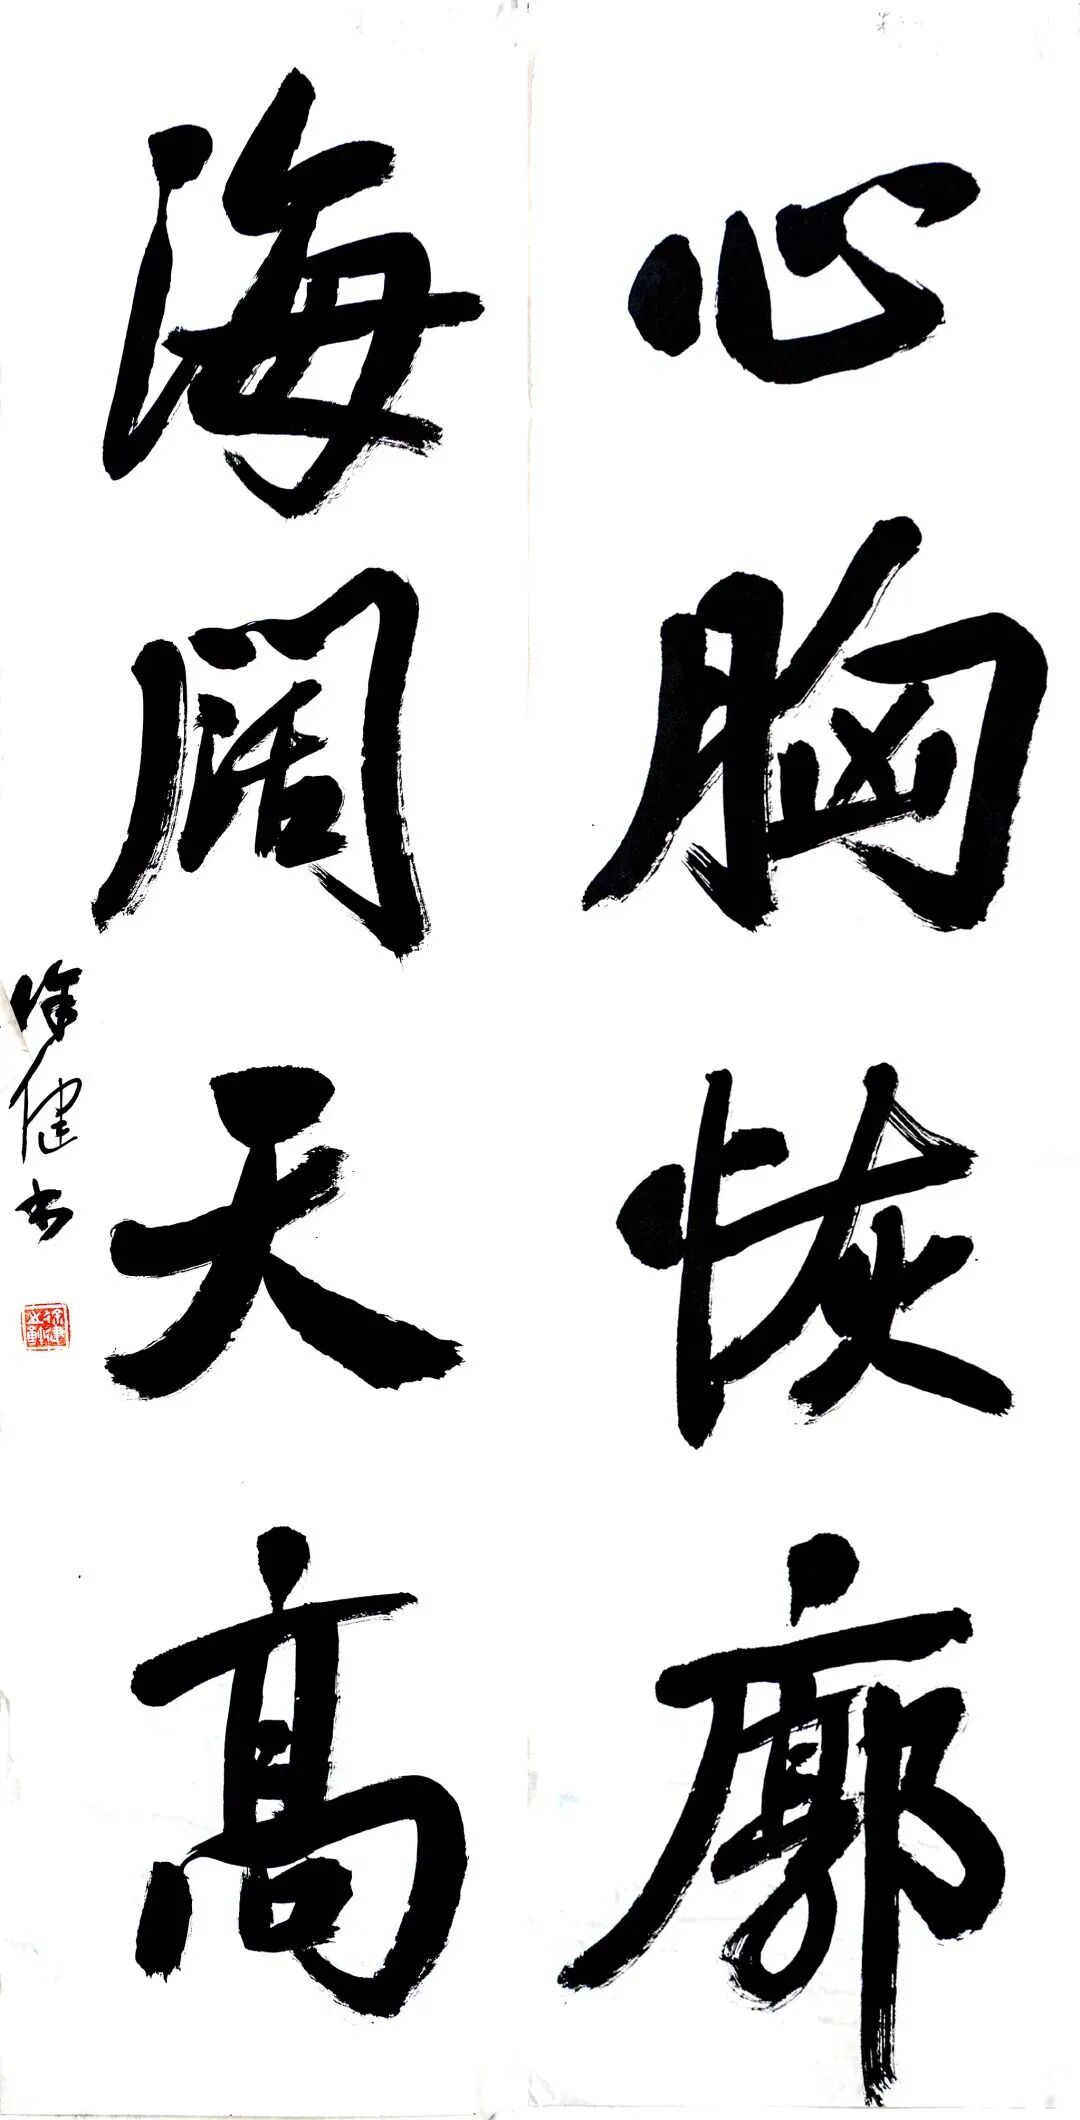 心胸恢廓
海阔天高
徐健书